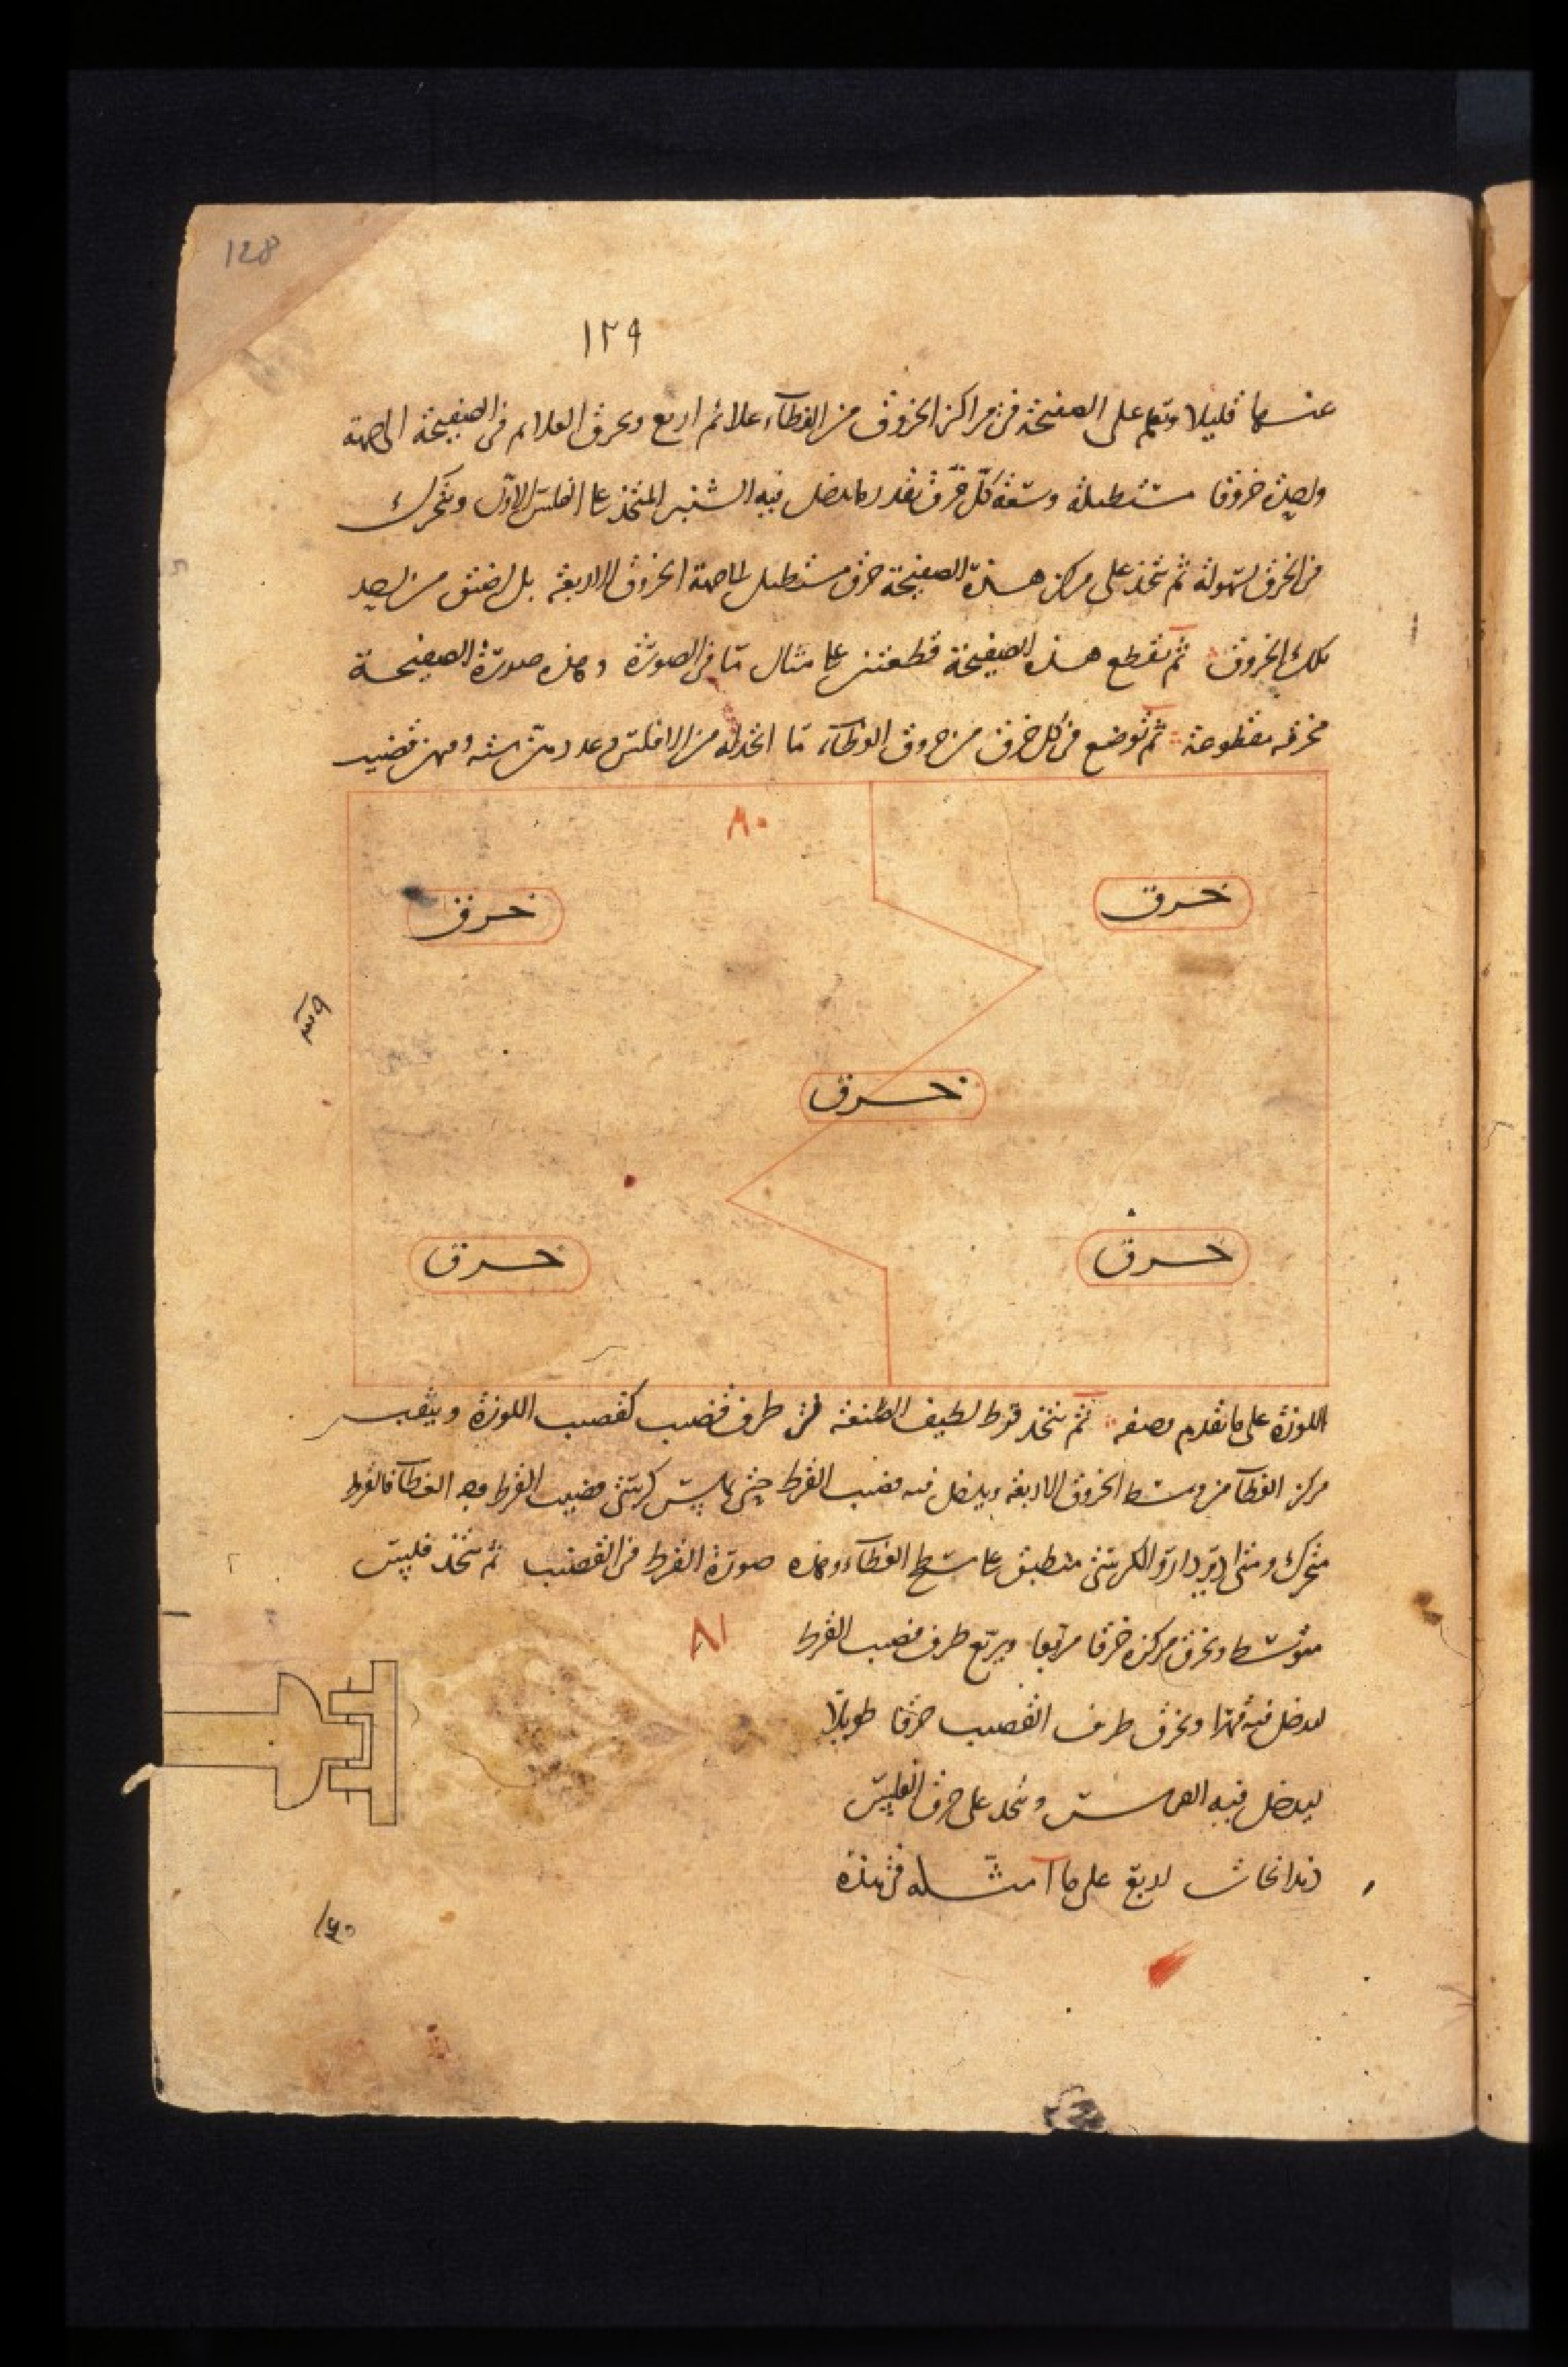 128
١٢٩
عنها قليلا وتعلم على الصفيحة في مراكز الخروق من الغطآء علائم اربع وتخرق العلائم في الصفيحة الى جهة
واحدة خروقا مستطيلة وسعة كل خرق بقدر ما يدخل فيه المتخذ على الفلس الاول ويتحرك
في الخرق بسهولة ثم تتخذ على مركز هذه الصفيحة خرق مستطيل الى جهة الخروق الاربعة بل اضيق من احد
تلك الخروق ثم تقطع هذه الصفيحة قطعتين على مثال ما في الصورة وهذه صورة الصفيحة
مخرقه مقطوعة ثم توضع في كل خرق من خروق الغطآء ما اتخذ له من الافلس قضيب
٨٠
خرق
خرق
خرق
خرق
خرق
اللوزة على ما تقدم وصفه ثم تتخذ قرط لطيف الصنعة في طرف قضيب كقضيب اللوزة ويثقب
مركز الغطآ من وسط الخروق الاربعة ويدخل فيه قضيب القرط حتى يماس قضيب القرط وجه الغطآ فالقرط
متحرك ومتى ادير دار منطبق على سطح الغطآء وهذه صورة القرط في القضيب ثم تتخذ فليس
٨١
متوسط وتخرق مركزه خرقا مربعا ويربع طرف قضيب القرط
ليدخل فيه ويخرق طرف القضيب خرقا طويلا
ليدخل فيه الفرس وتتخذ على حرف الفليس
على ما امثله في هذه